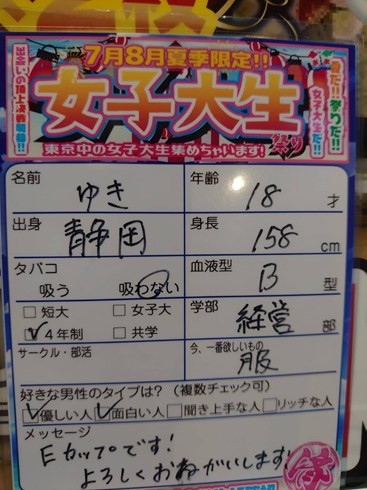 7月8月夏季限定!!
女子大生
祭り
東京中の女子大生集めちゃいます!
出会いの頂上決戦開幕!!
夏だ!!祭りだ!!
女子大生だ!!
名前 ゆき 年齢 18才
出身 静岡 身長 158cm
タバコ 吸う 吸わない 血液型 B型
□短大 □女子大 学部 経営部
☑4年制 □共学
サークル・部活 今、一番欲しいもの 服
好きな男性のタイプは?(複数チェック可)
☑優しい人 ☑面白い人 □聞き上手な人 □リッチな人
メッセージ
Eカップです!
よろしくおねがいします!